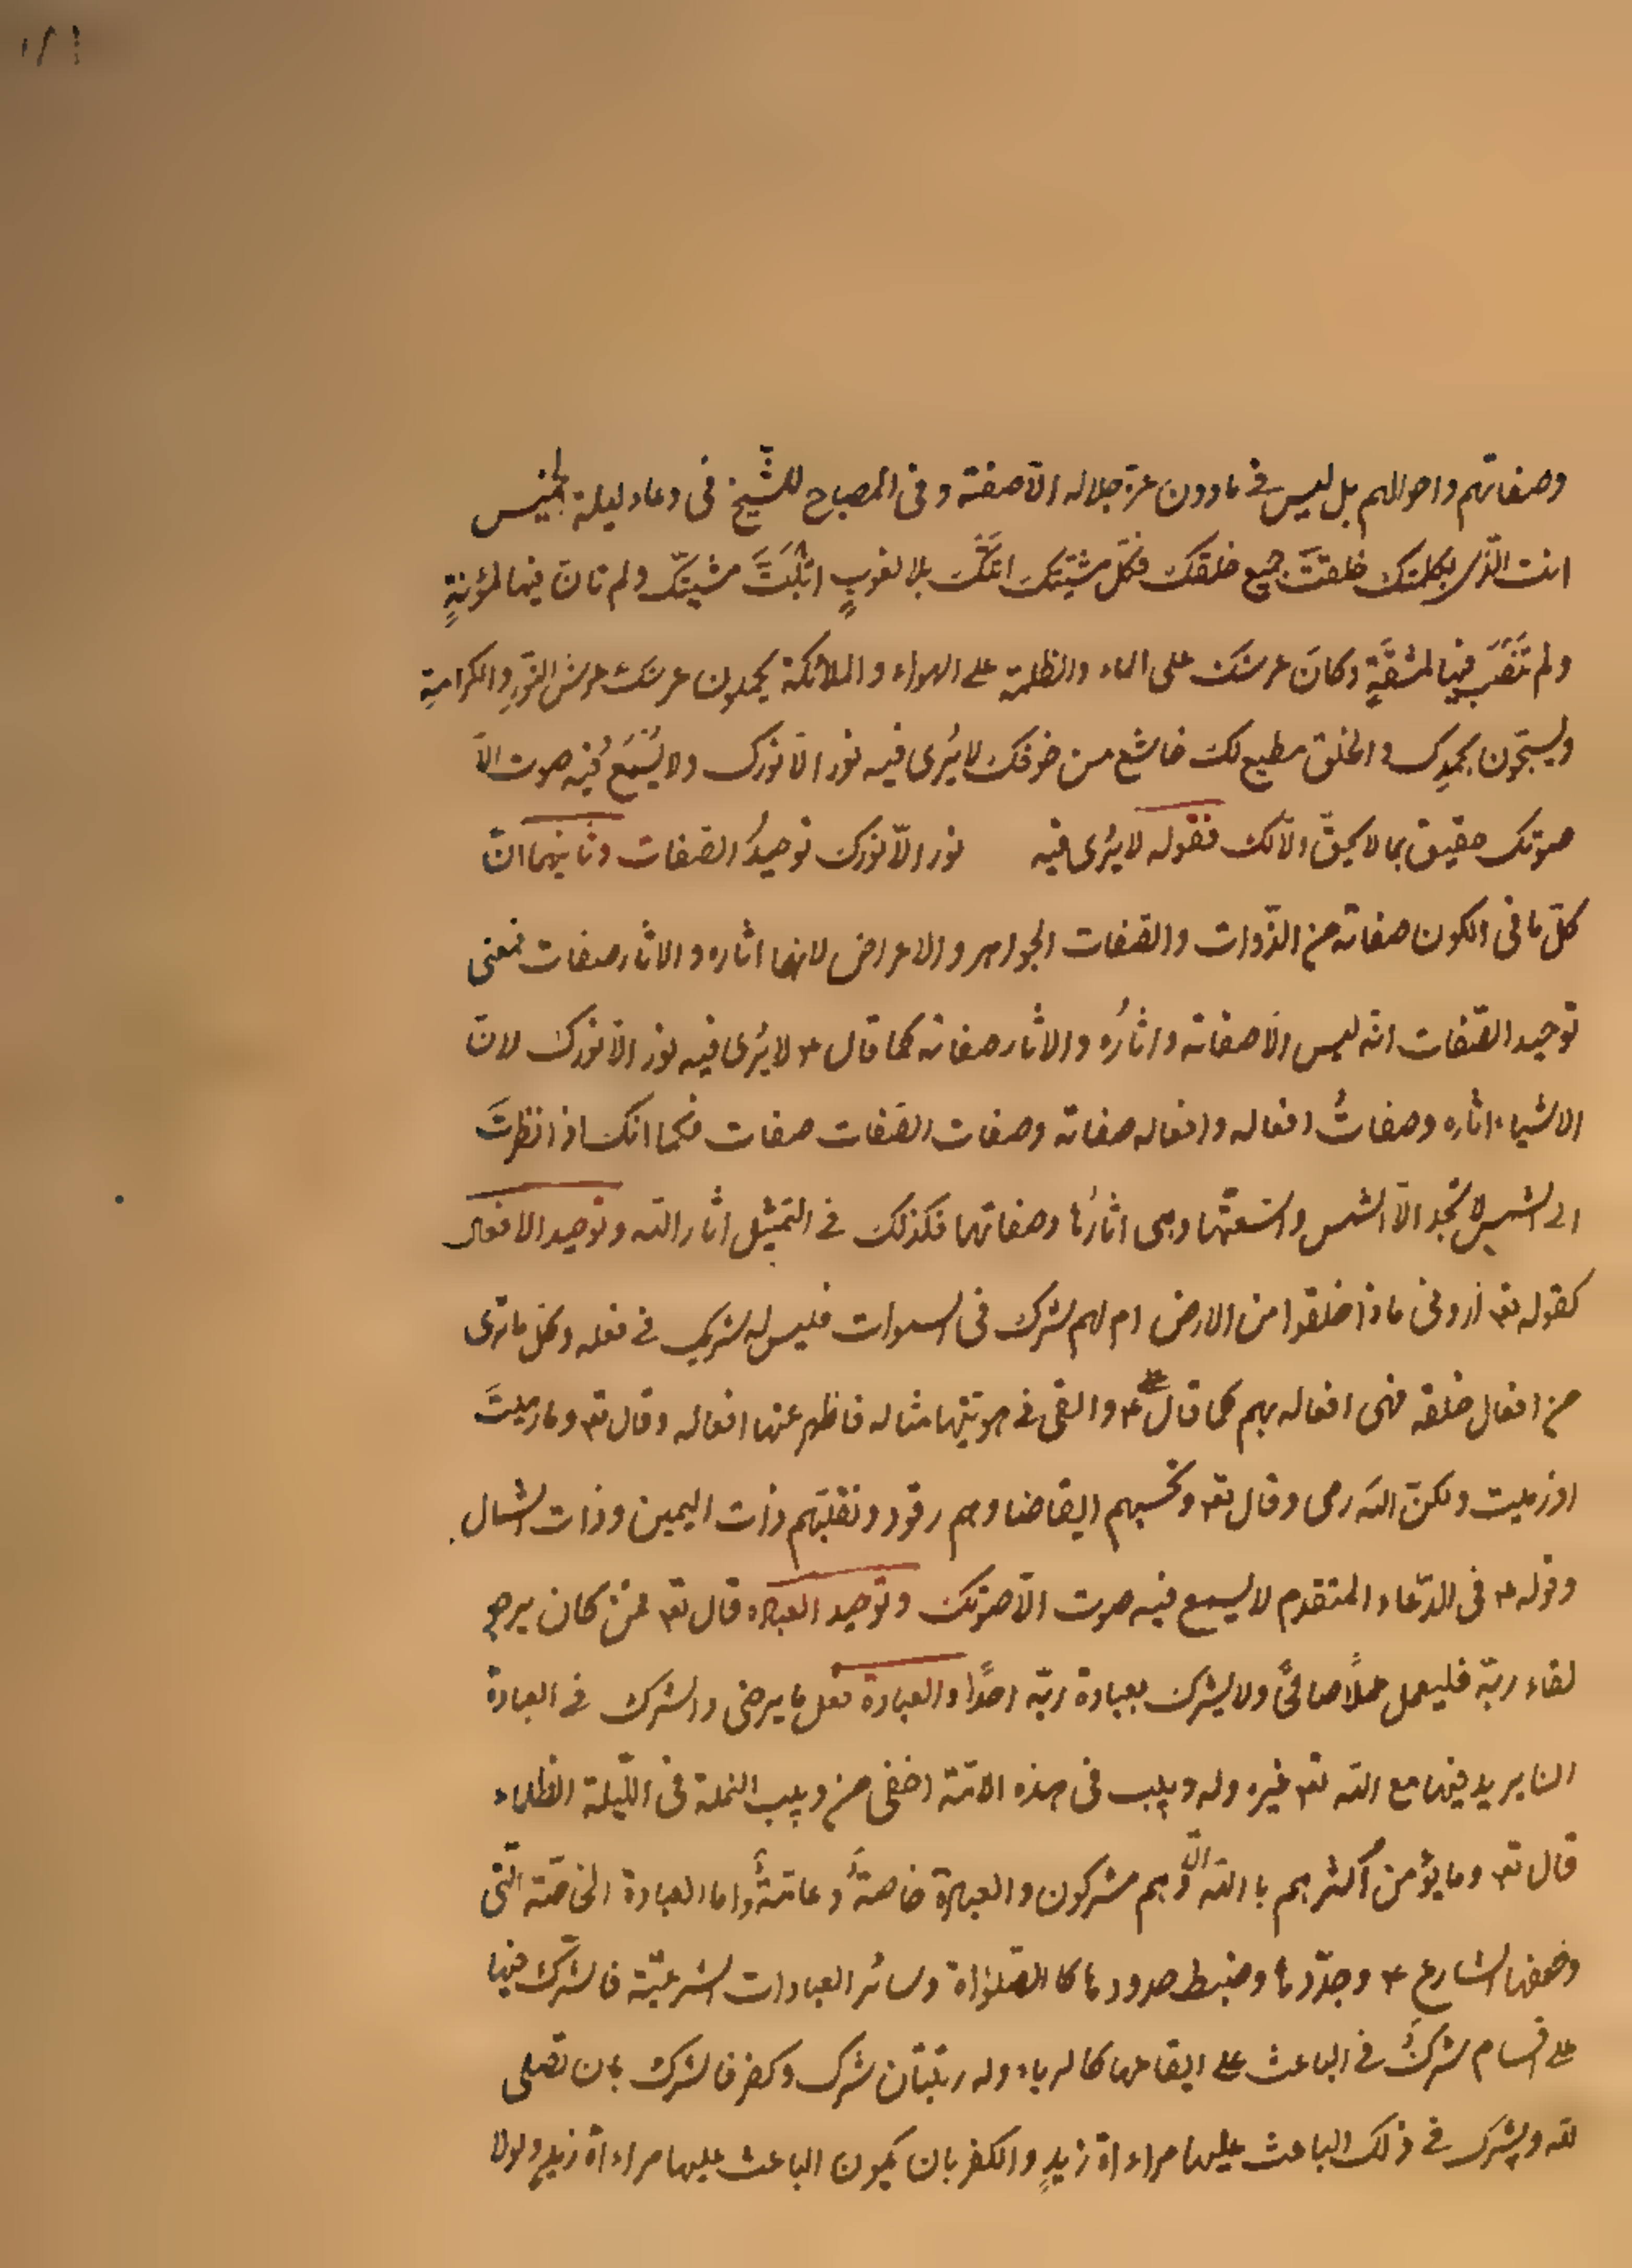 وصفاتهم واحوالهم بل ليس فى مادون عزة جلاله الّا صفته وفى المصباح للشّيخ فى دعاء ليلة الخميس
انت الّذى بكلمتك خلقتَ جميع خلقك فكلّ مشيّتك اتتك بلا لغوبٍ اثبتَّ مشيتك ولم تانَ فيها لمؤنةٍ
ولم تنصَب فيها لمشقّةٍ وكانَ عرشك على الماء والظلمة على الهواء والملائكة يحملون عرشك عرش النّورِ والكرامةِ
ويسبّحون بحمدِك والخلق مطيع لك خاشع من خوفك لا يُرى فيه نور الّا نورك ولا يُسْمَع فيه صوت الّا
صوتك حقيق بما لا يحقّ الّا لك فقوله لا يُرى فيه نور الّا نورك توحيدُ الصّفات وثانيهما انّ
كلّ ما فى الكون صفاته من الذّوات والصّفات الجواهر والاعراض لانها اثاره والاثار صفات فمعنى
توحيد الصّفات انّه ليس الّا صفاته واثارُه والاثار صفاته كما قال ع لا يُرى فيه نور الّا نورك لانّ
الاشياء اثاره وصفاتُ افعاله وافعاله صفاته وصفات الصّفات صفات فكما انك اذا نظرتَ
الى الشمس لا تجد الّا الشمس واشعتّها وهى اثارُها وصفاتها فكذلك فى التمثيل اثار اللّه وتوحيد الافعال
كقوله تع ارونى ماذا خلقوا من الارض ام لهم شرك فى السموات فليس له شريك فى فعله وكل ما ترى
من افعال خلقه فهى افعاله بهم كما قال على ع والقى فى هويتها مثاله فاظهر عنها افعاله وقال تع وما رميتَ
اذ رميت ولكنّ اللّه رمى وقال تع وتحسبهم ايقاضا وهم رقود ونقلبّهم ذات اليمين وذات الشمال
وقوله ع فى الدّعاء المتقدم لا يسمع فيه صوت الّا صوتك وتوحيد العبادة قال تع فمن كان يرجو
لقاء ربّه فليعمل عملًا صالحًا ولا يشرك بعبادة ربّه احدًا والعبادة فعل ما يرضى والشرك فى العبادة
ان يريد فيها مع اللّه تع غيره وله دبيب فى هذه الامّة اخفى من دبيب النملة فى اللّيلة الظلماء
قال تع وما يؤمن اكثرهم با اللّه الّا وهم مشركون والعبادة خاصةٌ وعامّةٌ واما العبادة الخاصّة الّتى
وضعها الشارع ع وحدّدها وضبط حدودها كا الصّلواة وسائر العبادات الشرعيّة فالشّرك فيها
على اقسام شركٌ فى الباعث على ايقاعها كالرياء وله رتبتان شرك وكفر فالشرك بان تصلى
للّه وتشرك فى ذلك الباعث عليها مراءاة زيدٍ والكفر بان يكون الباعث عليها مراءاة زيدٍ ولولا